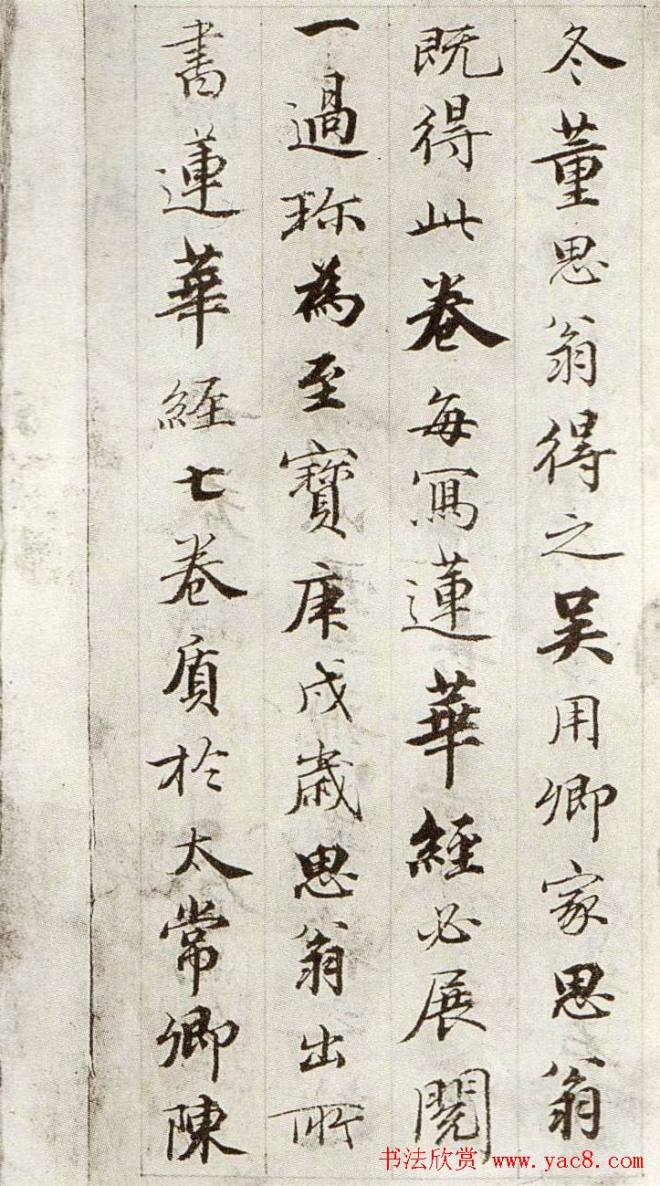 冬董思翁得之吴用卿家思翁
既得此卷每寫蓮華經必展閱
一過珎為至寶庚戌歲思翁出所
書蓮華経七卷質於太常卿陳
书法欣赏 www.yac8.com